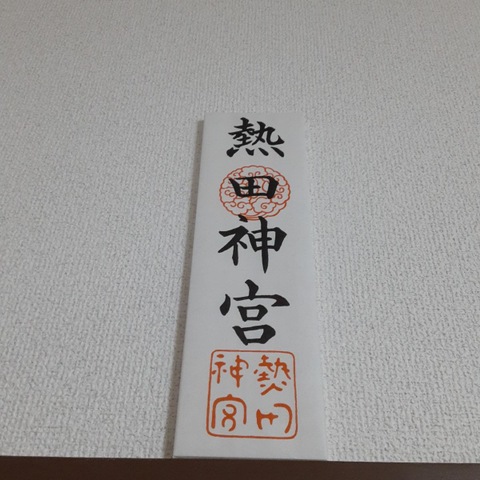 熱田神宮
熱田
神宮